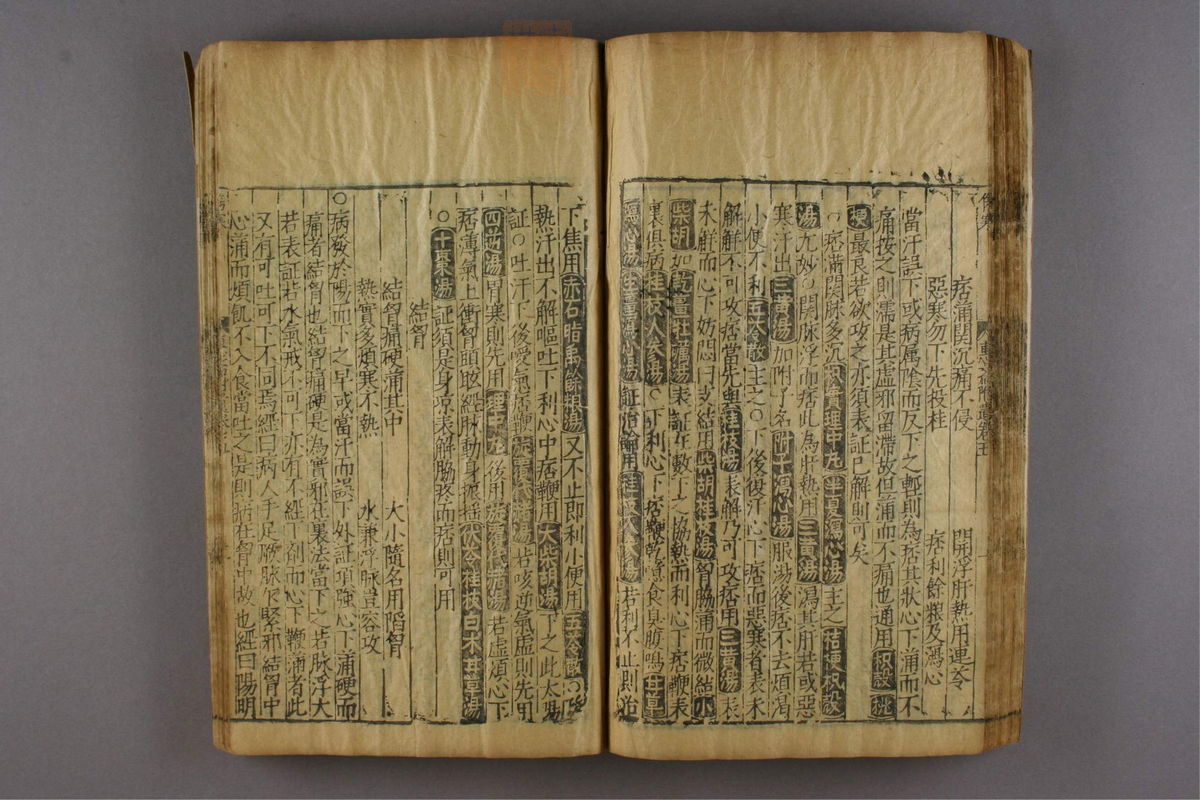 痞滿関沉痛不侵　開浮肝熱用連芩
惡寒勿下先投桂　痞利餘粮及瀉心
當汗誤下或病属陰而反下之暫則為痞其狀心下滿而不
痛按之則濡是其虛邪留滯故但滿而不痛也通用枳殻桃
梗最良若欲攻之亦須表証已解則可矣
○痞滿関脉多沉理中丸半夏瀉心湯主之桔梗枳殻
湯尤妙○関脉浮而痞此為肝熱用三黄湯瀉其肝若或惡
寒汗出三黄湯加附子名附子瀉心湯服湯後痞不去煩渴
小便不利五苓散主之○下後復汗心下痞而惡寒者表未
解解不可攻痞當先與桂枝湯表解乃可攻痞用三黄湯表
未解而心下妨悶曰支結用柴胡桂枝湯胷脇滿而微結小
柴胡加乾薑牡礪湯表証在數下之協熱而利心下痞鞕表
裏俱病桂枝人參湯○下利心下痞鞕乾噫食臭腹鳴甘草
瀉心湯生薑瀉心湯証治論用桂枝人參湯若利不止則治
下焦用赤石脂禹餘粮湯又不止即利小便用五苓散○
熱汗出不解嘔吐下利心中痞鞕用大柴胡湯下之此太陽
証○吐汗下後噯氣痞鞕旋覆代赭湯若咳逆氣虛則先用
四逆湯胃寒則先用理中丸後用旋覆代赭湯若虛煩心下
痞滿氣上衝胷頭眩經脉動身振搖茯苓桂枝白术甘草湯
○十棗湯証須是身凉表解脇疼而痞則可用
結胷
結胷痛硬滿其中　大小隨名用陷胷
熱實多煩寒不熱　水兼浮脉豈容攻
○病發於陽而下之早或當汗而誤下外証項強心下滿硬而
痛者結胷也結胷痛硬是為實邪在裏法當下之若脉浮大
若表証若水氣戒不可下亦有不經下創而心下鞕滿者此
又有可吐可下不同焉經曰病人手足厥脉乍緊邪結胷中
心滿而煩飢不入食當吐之是則病在胷中故也經曰陽明